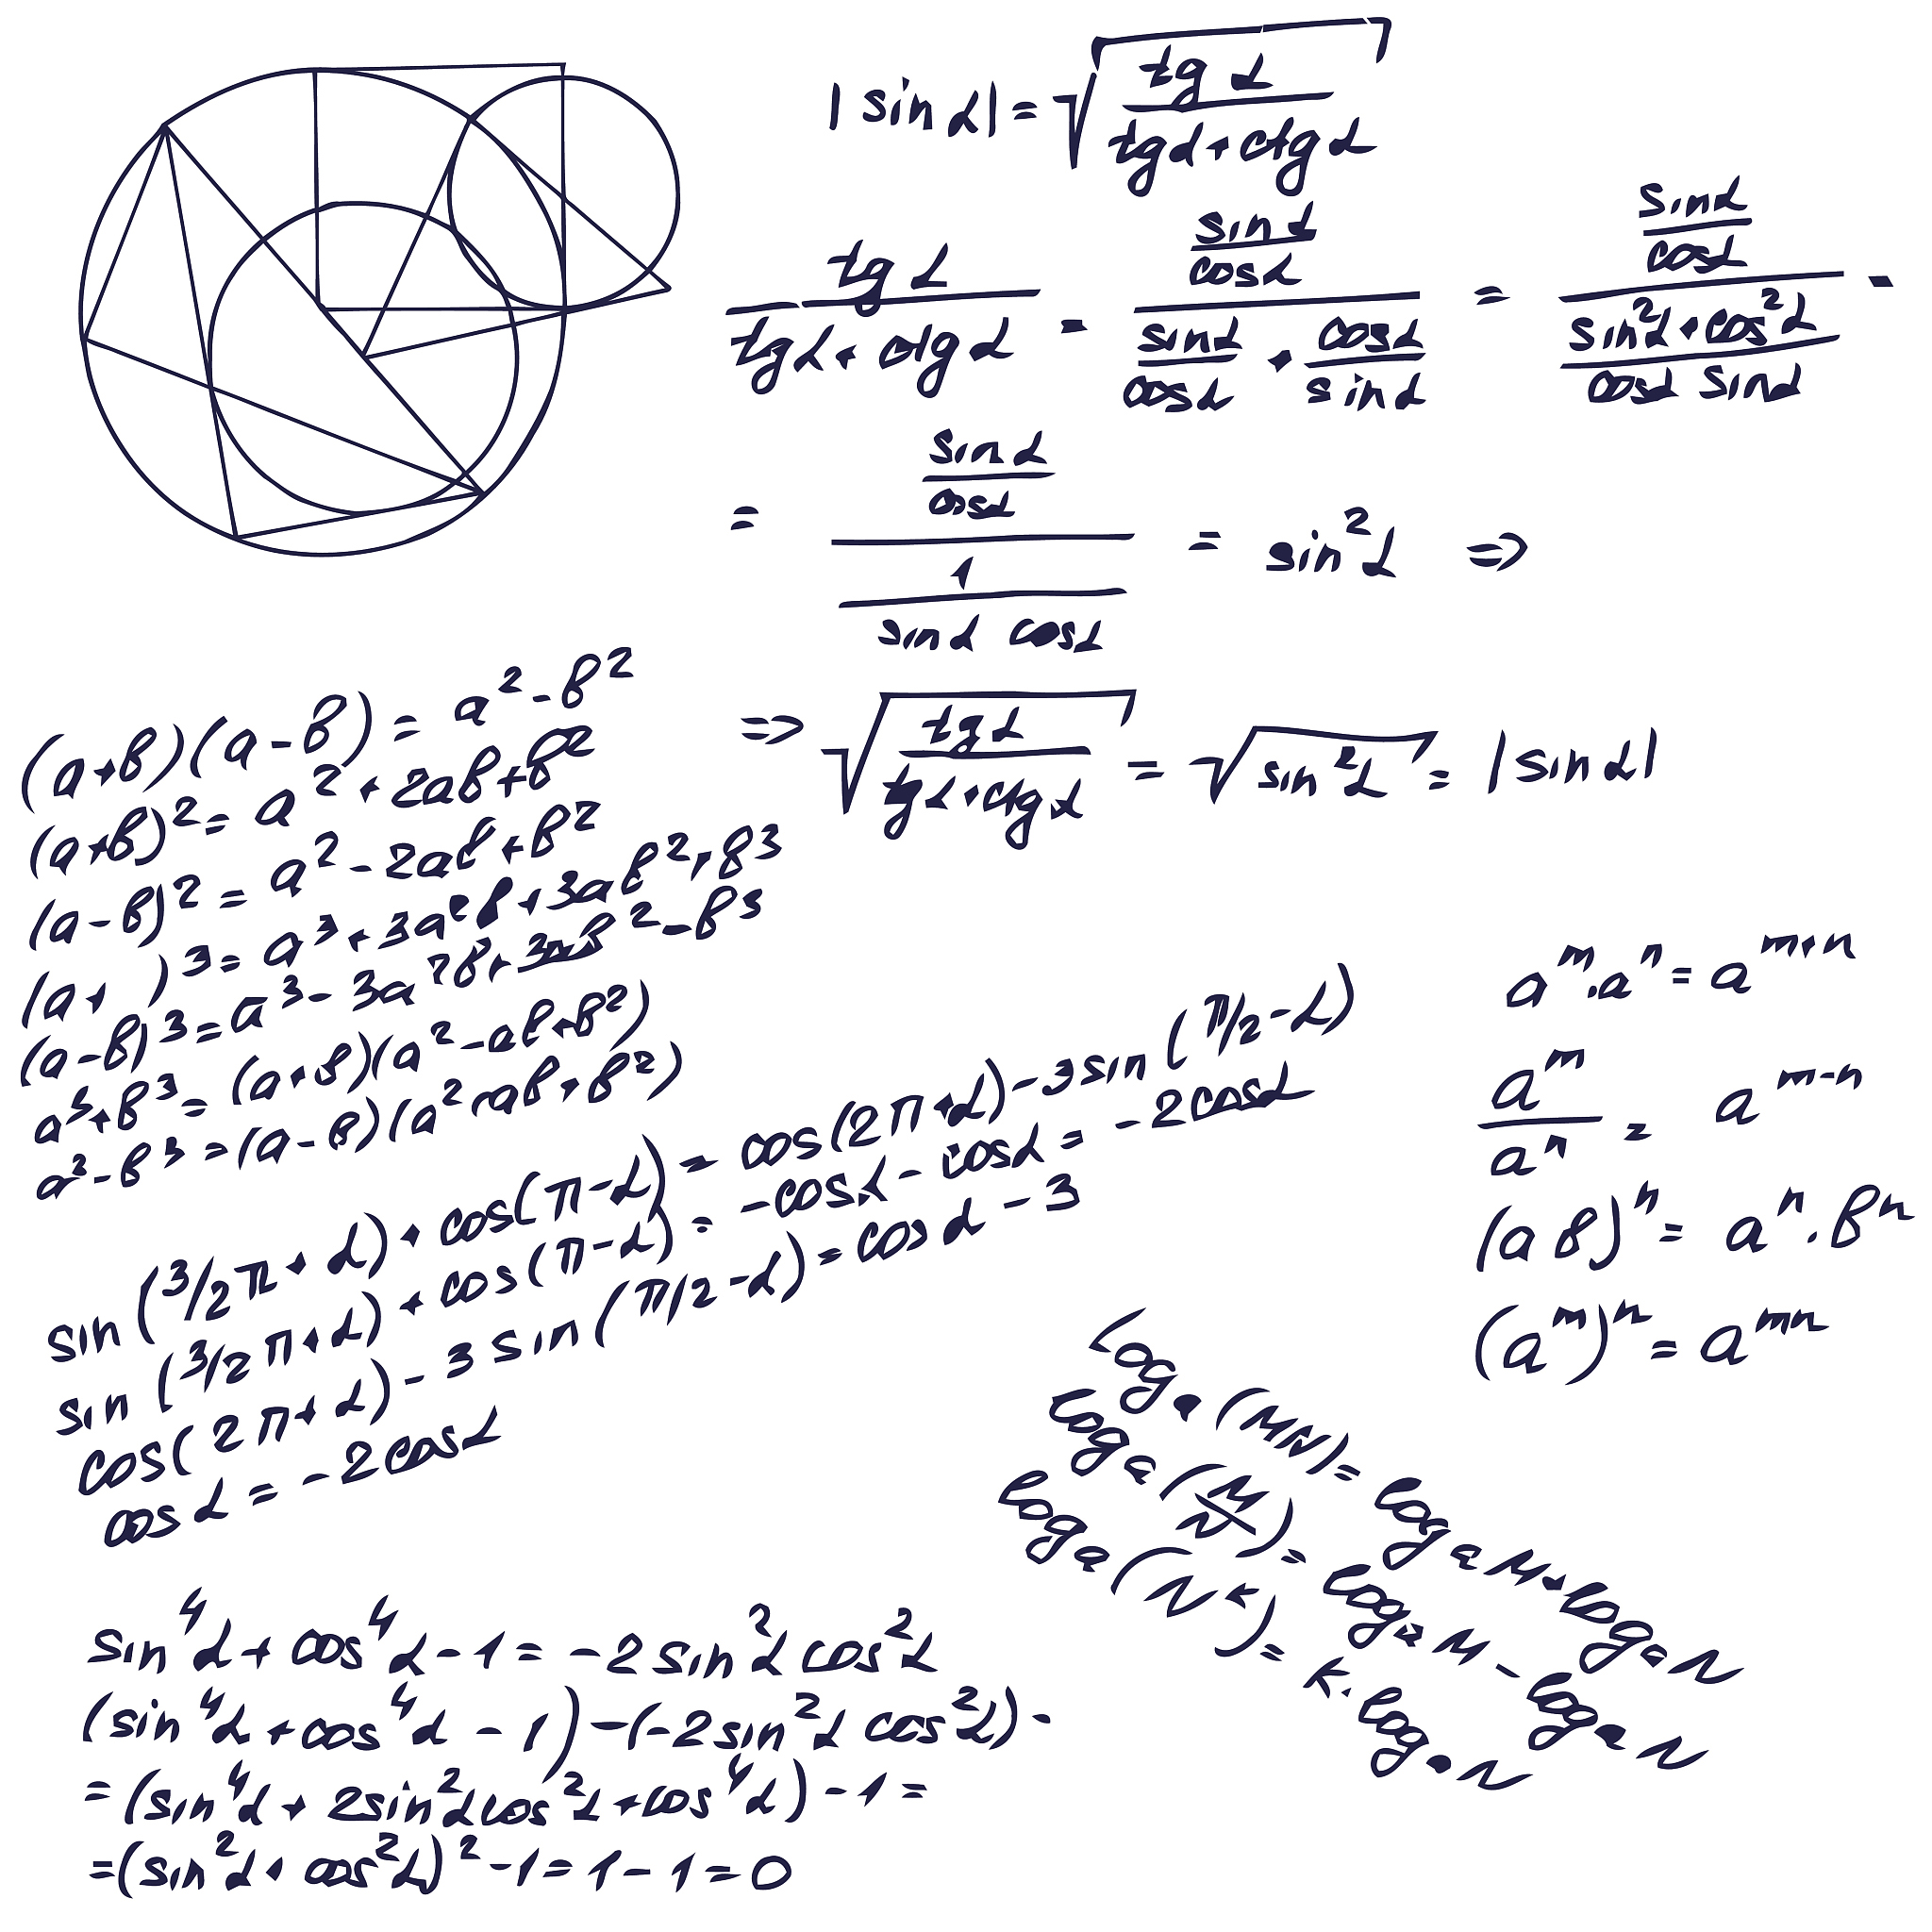 |sin α| = √(tg α / (tg α + ctg α))
tg α / (tg α + ctg α) = (sin α / cos α) / (sin α / cos α + cos α / sin α) = (sin α / cos α) / ((sin² α + cos² α) / (cos α sin α)) =
= (sin α / cos α) / (1 / (sin α cos α)) = sin² α ⇒
⇒ √(tg α / (tg α + ctg α)) = √(sin² α) = |sin α|
(a+b)(a-b) = a² - b²
(a+b)² = a² + 2ab + b²
(a-b)² = a² - 2ab + b²
(a+ )³ = a³ + 3a²b + 3ab² + b³
(a-b)³ = a³ - 3a²b + 3ab² - b³
a³+b³ = (a+b)(a² - ab + b²)
a³-b³ = (a-b)(a² + ab + b²)
sin(3/2 π + α) + cos(π - α) = cos(2π + α) - 3 sin(π/2 - α)
sin(3/2 π + α) + cos(π - α) = -cos α - cos α = -2 cos α
cos(2π + α) - 3 sin(π/2 - α) = cos α - 3
cos α = -2 cos α
aᵐ · aⁿ = aᵐ⁺ⁿ
aᵐ / aⁿ = aᵐ⁻ⁿ
(ab)ⁿ = aⁿ · bⁿ
(aᵐ)ⁿ = aᵐⁿ
logₐ(MN) = logₐ M + logₐ N
logₐ(M/N) = logₐ M - logₐ N
logₐ(Nᵏ) = k · logₐ N
sin⁴ α + cos⁴ α - 1 = -2 sin² α cos² α
(sin⁴ α + cos⁴ α - 1) - (-2 sin² α cos² α) =
= (sin⁴ α + 2 sin² α cos² α + cos⁴ α) - 1 =
= (sin² α + cos² α)² - 1 = 1 - 1 = 0